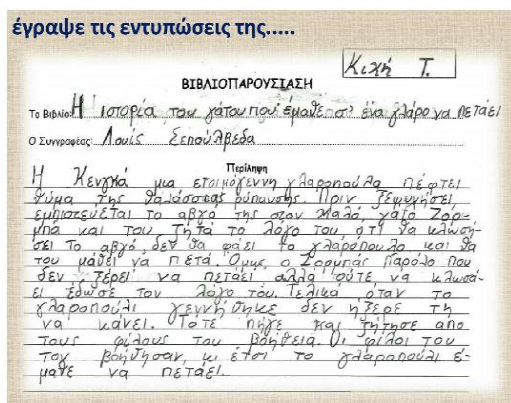 έγραψε τις εντυπώσεις της.....
Κική Τ.
ΒΙΒΛΙΟΠΑΡΟΥΣΙΑΣΗ
Το Βιβλίο: Η ιστορία του γάτου που έμαθε σ' ένα γλάρο να πετάει
Ο Συγγραφέας: Λουίς Σεπούλβεδα
Περίληψη
Η Κενγκά μια ετοιμόγεννη γλαροπούλα πέφτει
θύμα της θαλάσσιας ρύπανσης. Πριν ξεψυχήσει,
εμπιστεύεται το αβγό της στον καλό, γάτο Ζορ-
μπά και του ζητά το λόγο του, ότι θα κλωσή-
σει το αβγό δεν θα φάει το γλαρόπουλο και θα
του μάθει να πετά. Όμως, ο Ζορμπάς παρόλο που
δεν ξέρει να πετάει αλλά ούτε να κλωσά-
ει έδωσε τον λόγο του. Τελικά όταν το
γλαροπούλι γεννήθηκε δεν ήξερε τη
να κάνει. Τότε πήγε και ζήτησε απο
τους φίλους του βοήθεια. Οι φίλοι του
τον βοήθησαν, κι έτσι το γλαροπούλι έ-
μαθε να πετάει.